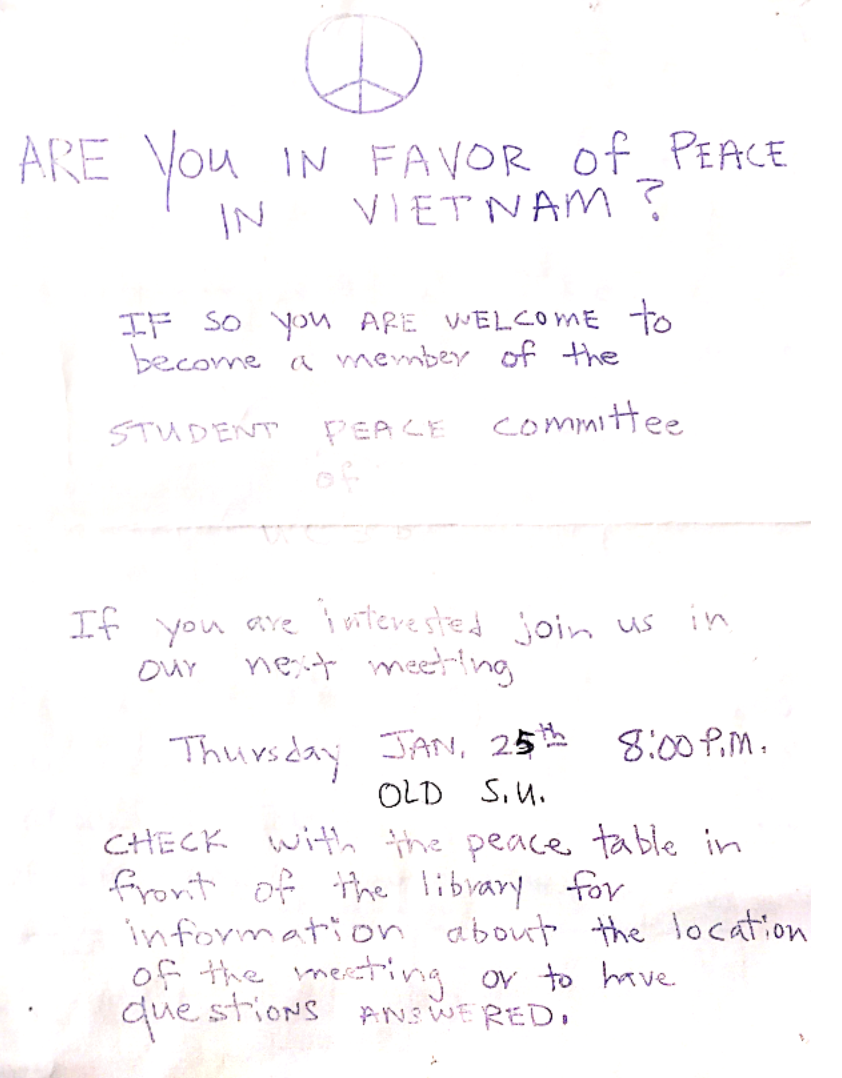 ARE You IN FAVOR of PEACE
IN VIETNAM?
IF SO you ARE WELCOME to
become a member of the
STUDENT PEACE committee
of
If you are interested join us in
our next meeting
Thursday JAN. 25th 8:00 P.M.
OLD S.U.
CHECK with the peace table in
front of the library for
information about the location
of the meeting or to have
questions ANSWERED.